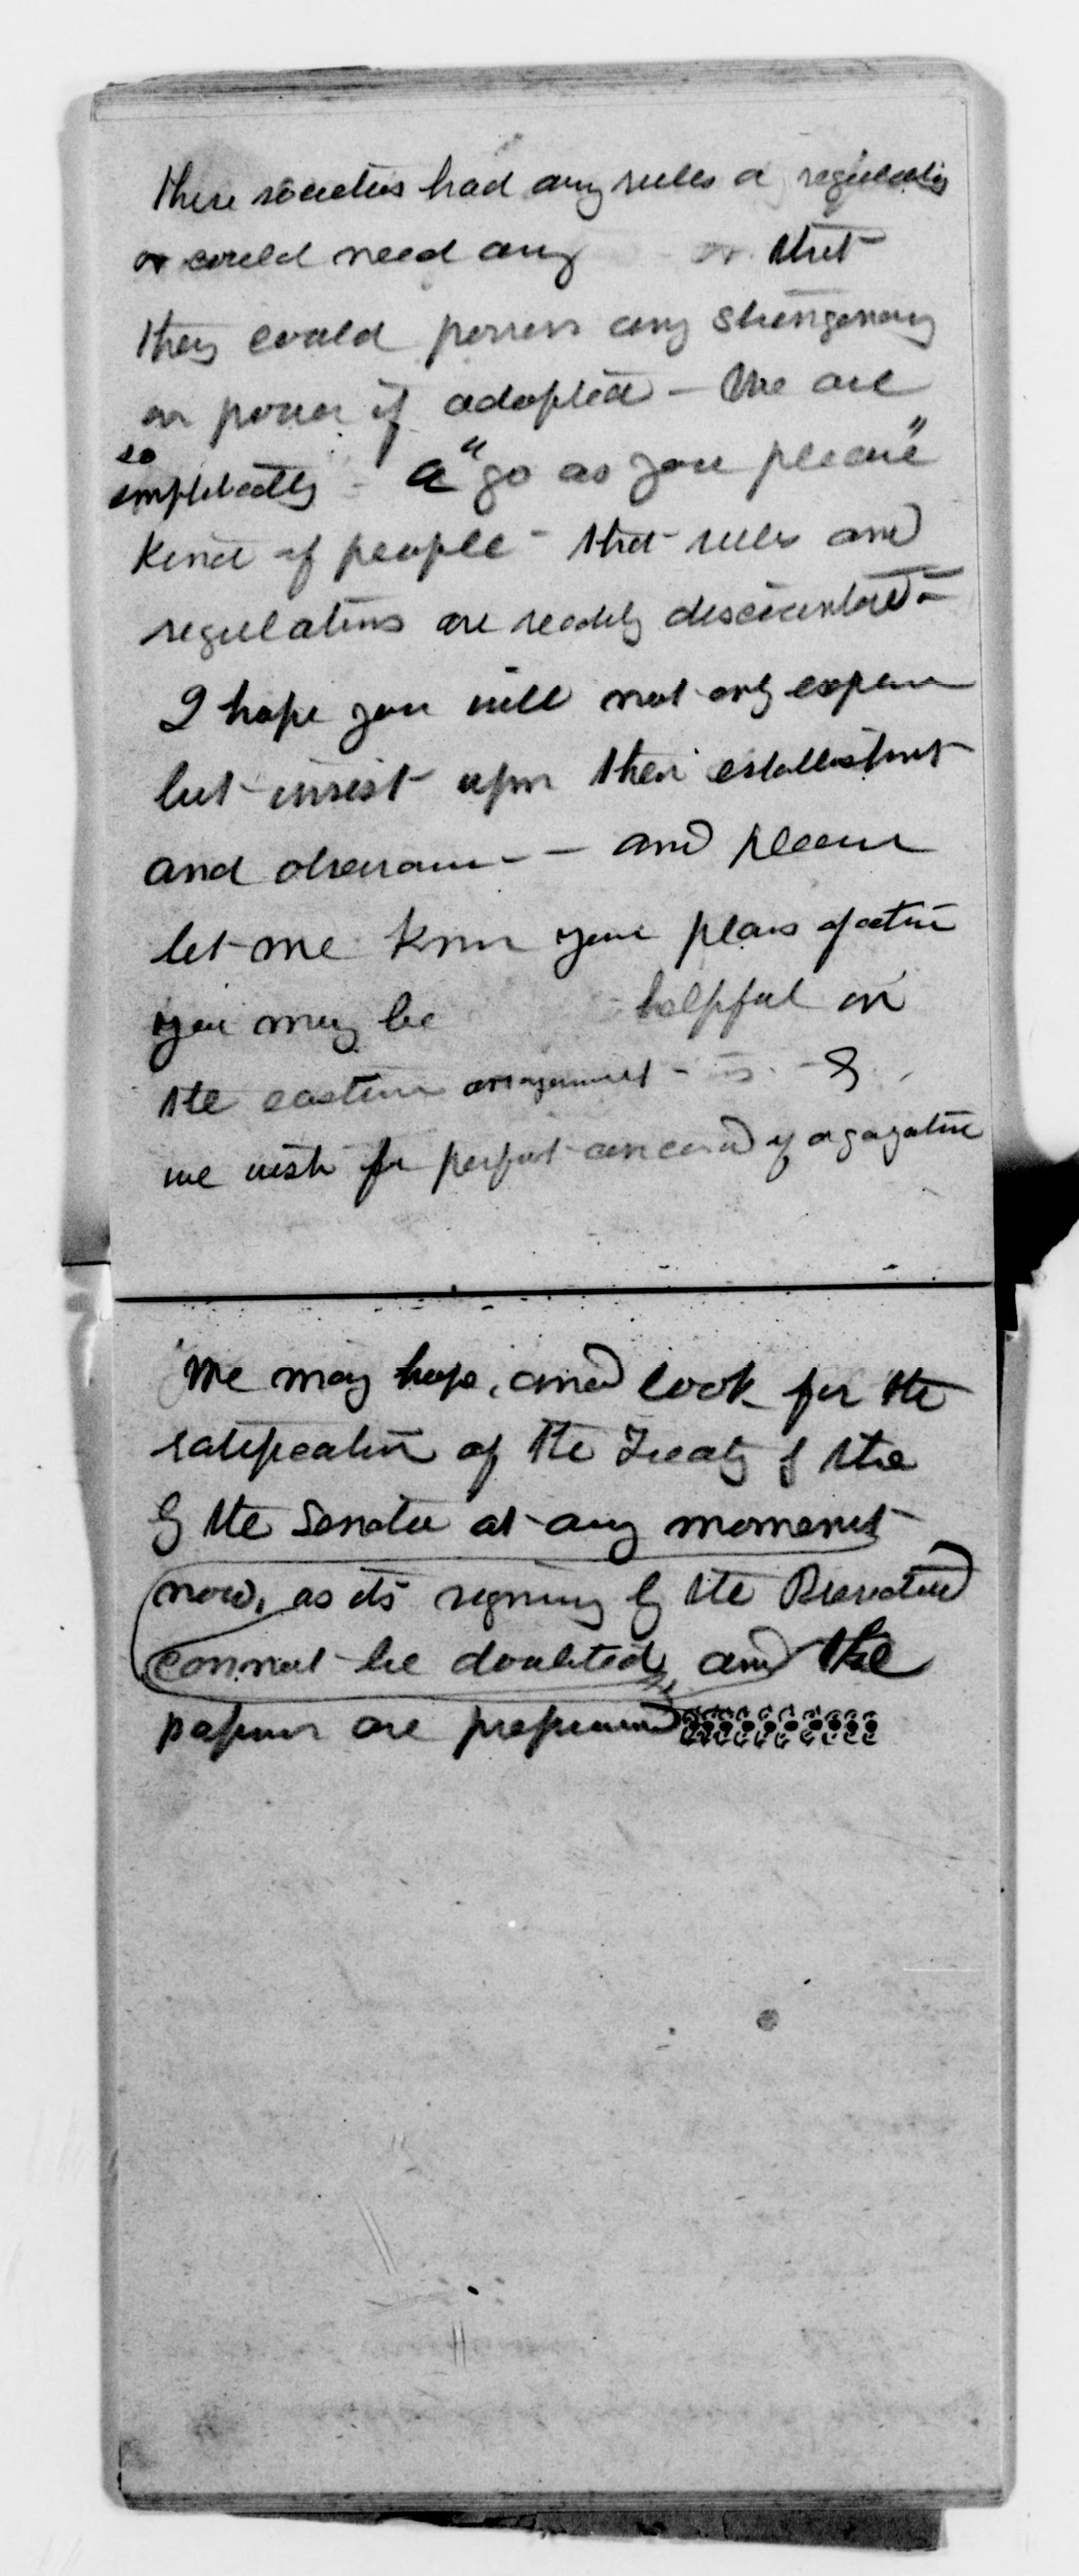 these societies had any rules or regulations
or could need any or that
they could possess any stringency
or power if adopted - We are
so
emphatically - a "go as you please"
Kind of people - that rules and
regulations are readily discountened -
I hope you will not only expect
but insist upon their establishment
and observance - - and please
let me know your plans of action
you may be helpful in
the eastern arrangement - &
we wish for perfect concord of organization
We may hope, and look for the
ratification of the Treaty &
by the Senate at any moment
now, as its signing by the President
cannot be doubted, and the
papers are prepared